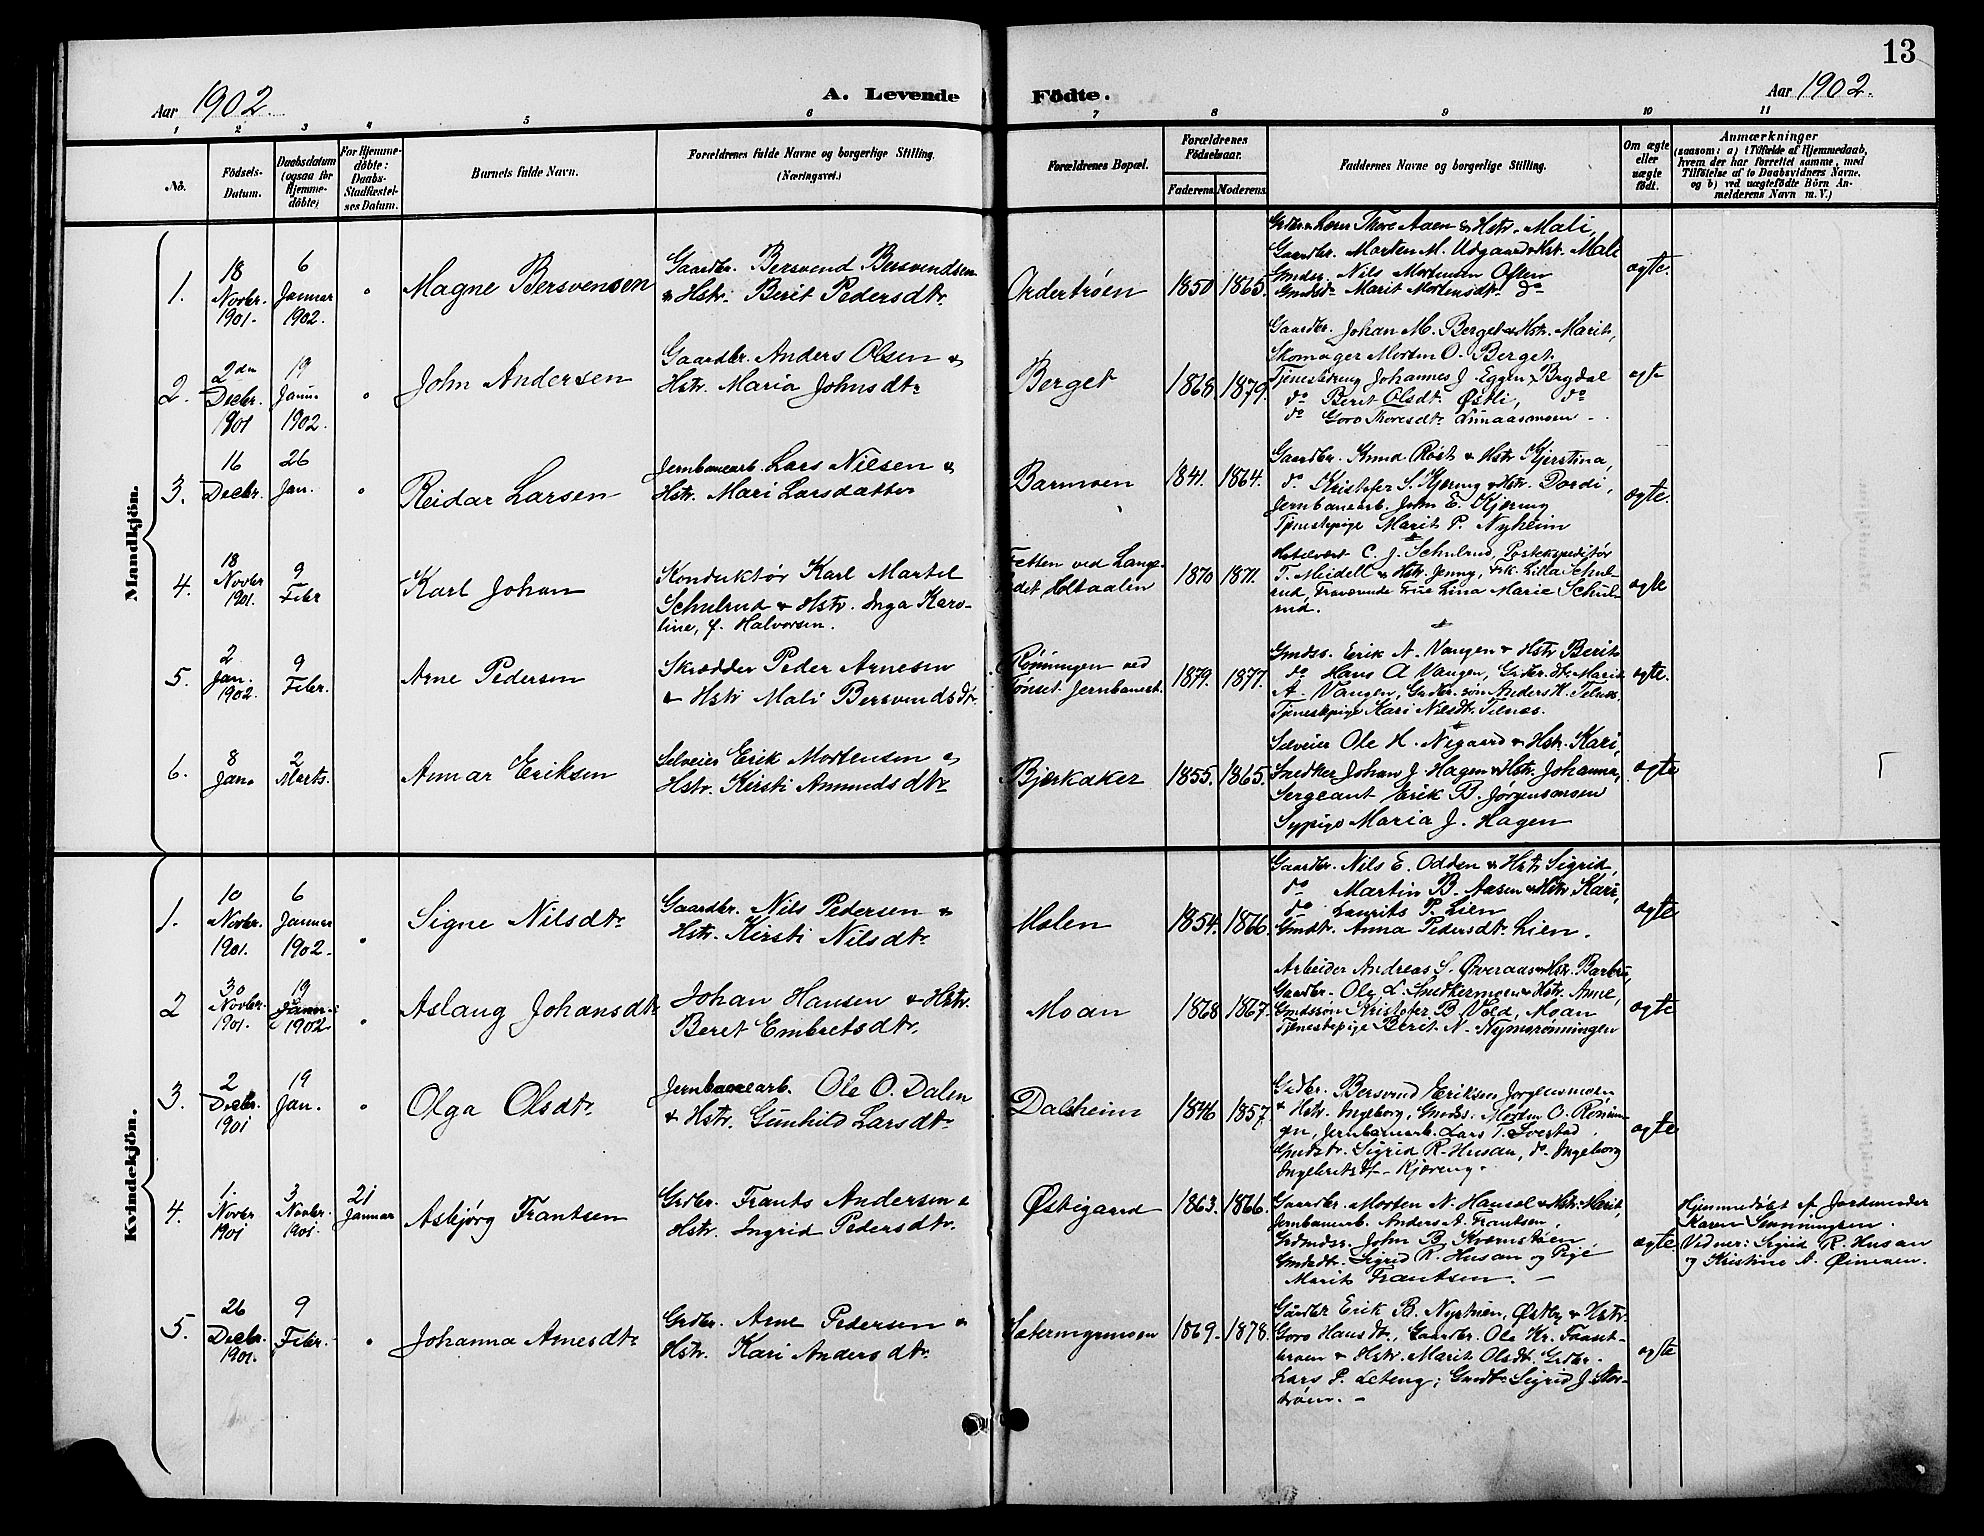 13
Aar 1902.
A. Levende Födte.
Aar 1902.
1 2 3 4 5 6 7 8 9 10 11
No.
Födsels-Datum.
Daabsdatum (ogsaa for Hjemme-döbte)
For Hjemme-döbte: Daabs-Stadfæstel-ses Datum.
Barnets fulde Navn.
Forældrenes fulde Navne og borgerlige Stilling.
(Næringsvei.)
Forældrenes Bopæl.
Forældrenes Födselsaar.
Faderens. Moderens.
Faddernes Navne og borgerlige Stilling.
Om ægte eller uægte födt.
Anmærkninger
(saasom: a) i Tilfælde af Hjemmedaab,
hvem der har forrettet samme, med
Tilföielse af to Daabsvidners Navne,
og b) ved uægtefödte Börn An-
melderens Navn m. V.)
Mandkjön.
1.
18 Novbr. 1901.
6 Januar 1902.
Magne Bersvensen
Gaardbr. Bersvend Bersvendsen
& Hstr. Berit Pedersdtr.
1850 1865.
Thore Aaen & Hstr. Mali,
Gaardbr. Morten M. Udgaard & Hstr. Mali
Gmdsr. Nils Mortensen Often
Marit Mortensdtr. do
ægte.
2.
2den Decbr. 1901
19 Janu. 1902.
John Andersen
Gaardbr. Anders Olsen &
Hstr. Maria Johnsdtr.
Berget
1868 1879.
Gaardbr. Johan M. Berget & Hstr. Marit,
Skomager Morten O. Berget
Tjenestedreng Johannes J. Eggen, Brydal
do Berit Olsdt. Østli, do
do Goro Thoresdtr.
ægte
3.
16 Decbr.
26 Jan.
Reidar Larsen
Jernbanearb. Lars Nilsen &
Hstr. Mari Larsdatter
Barmoen
1841. 1864.
Gaardbr. Knud Røst & Hstr Kjerstina,
do Kristofer S. Kjæreng & Hstr. Dordi,
Jernbanearb. John E. Kjæreng
Tjenestepige Marit P. Nyheim
ægte.
4.
18 Novbr 1901.
9 Febr
Karl Johan
Konduktør Karl Martel
Schulrud & Hstr. Inga Karo-
line, f. Halvorsen.
ved Lange-
det Holtaalen
1870 1871.
Hotelvært C. J. Schulrud, Postekspeditør
T. Meidell & Hstr. Jenny, Frk. Lilla Schul-
rud, Fraværende Frue Lina Marie Schul-
rud.
ægte
5.
2 Jan. 1902.
9 Febr.
Arne Pedersen
Skrædder Peder Arnesen
& Hstr Mali Bersvendsdtr.
Rønningen ved
Tønset Jernbanest.
1879. 1877.
Gmdss. Erik A. Vangen & Hstr Berit
do Hans A Vangen, Marit
A. Vangen, Grdbr.søn Anders H. Telnes
Tjenestepige Kari Nilsdtr. Telnes.
ægte.
6.
8 Jan.
2 Marts.
Annar Eriksen
Selveier Erik Mortensen &
Hstr. Kirsti Amundsdtr
Bjerkaker
1855. 1865.
Selveier Ole H. Nygaard & Hstr. Kari,
Snedker Johan J. Hagen & Hstr. Johanna,
Sergeant Erik B.
Sypige Maria J. Hagen
ægte
Kvindekjön.
1.
10 Novbr. 1901.
6 Januar 1902.
Signe Nilsdtr.
Gaardbr. Nils Pedersen &
Hstr. Kirsti Nilsdtr.
Molen
1854. 1866.
Gaardbr. Nils E. Odden & Hstr Sigrid,
do Martin B. Aasen & Hstr Kari,
do Laurits P. Lien
Gmdt. Anna Pedersdt. Lien.
ægte
2
30 Novbr. 1901.
19 Januar 1902
Aslaug Johansdtr.
Johan Hansen & Hstr.
Beret Embretsdtr.
Moan
1868 1867.
Arbeider Andreas S. Øveraas & Hstr. Barbro,
Gaardbr. Ole L. Snedkermoen & Hstr. Anne,
Gmdssøn Kristofer B. Vold, Moan
Tjenestepige Berit N.
ægte
3.
2 Decbr. 1901
19 Jan.
Olga Olsdtr.
Jernbanearb. Ole O. Dalen
& Hstr. Gunhild Larsdtr.
Dalsheim
1846 1857.
Grdbr. Bersvend Eriksen
& Hstr. Ingeborg, Gmdss. Morten O. Rønnin-
gen, Jernbanearb. Lars T. Svestad
Gmdstr. Sigrid R. Husan, do Ingeborg
Ingebretsdt. Kjæreng.
ægte
4.
1. Novbr 1901
3 Novbr. 1901.
21 Januar
Asbjørg Frantsen
Grdbr. Frants Andersen &
Hstr. Ingrid Pedersdtr.
Østigaard
1863. 1866.
Gaardbr. Morten N. Hansel & Hstr. Marit,
Jernbanearb. Anders A. Frantsen,
John B. Kværntrøen,
Gmdsdtr. Sigrid R. Husan og Pige
Marit Frantsen.
ægte
Hjemmedøbt af Jordemoder
Karen
Vidner: Sigrid R. Husan
og Kristine A. Øimoen.
5.
26 Decbr. 1901.
9 Febr.
Johanna Arnesdtr.
Grdbr. Arne Pedersen &
Hstr. Kari Andersdtr.
Sætermyrmoen
1869. 1878.
Gaardbr Erik B. Nystuen, Østby & Hstr.
Goro Hansdt., Gaardbr. Ole Kr. Fauset-
broen & Hstr. Marit Olsdt. Grdbr.
Lars P. Leteng; Gmdt. Sigrid J. Stor-
trøen.
ægte